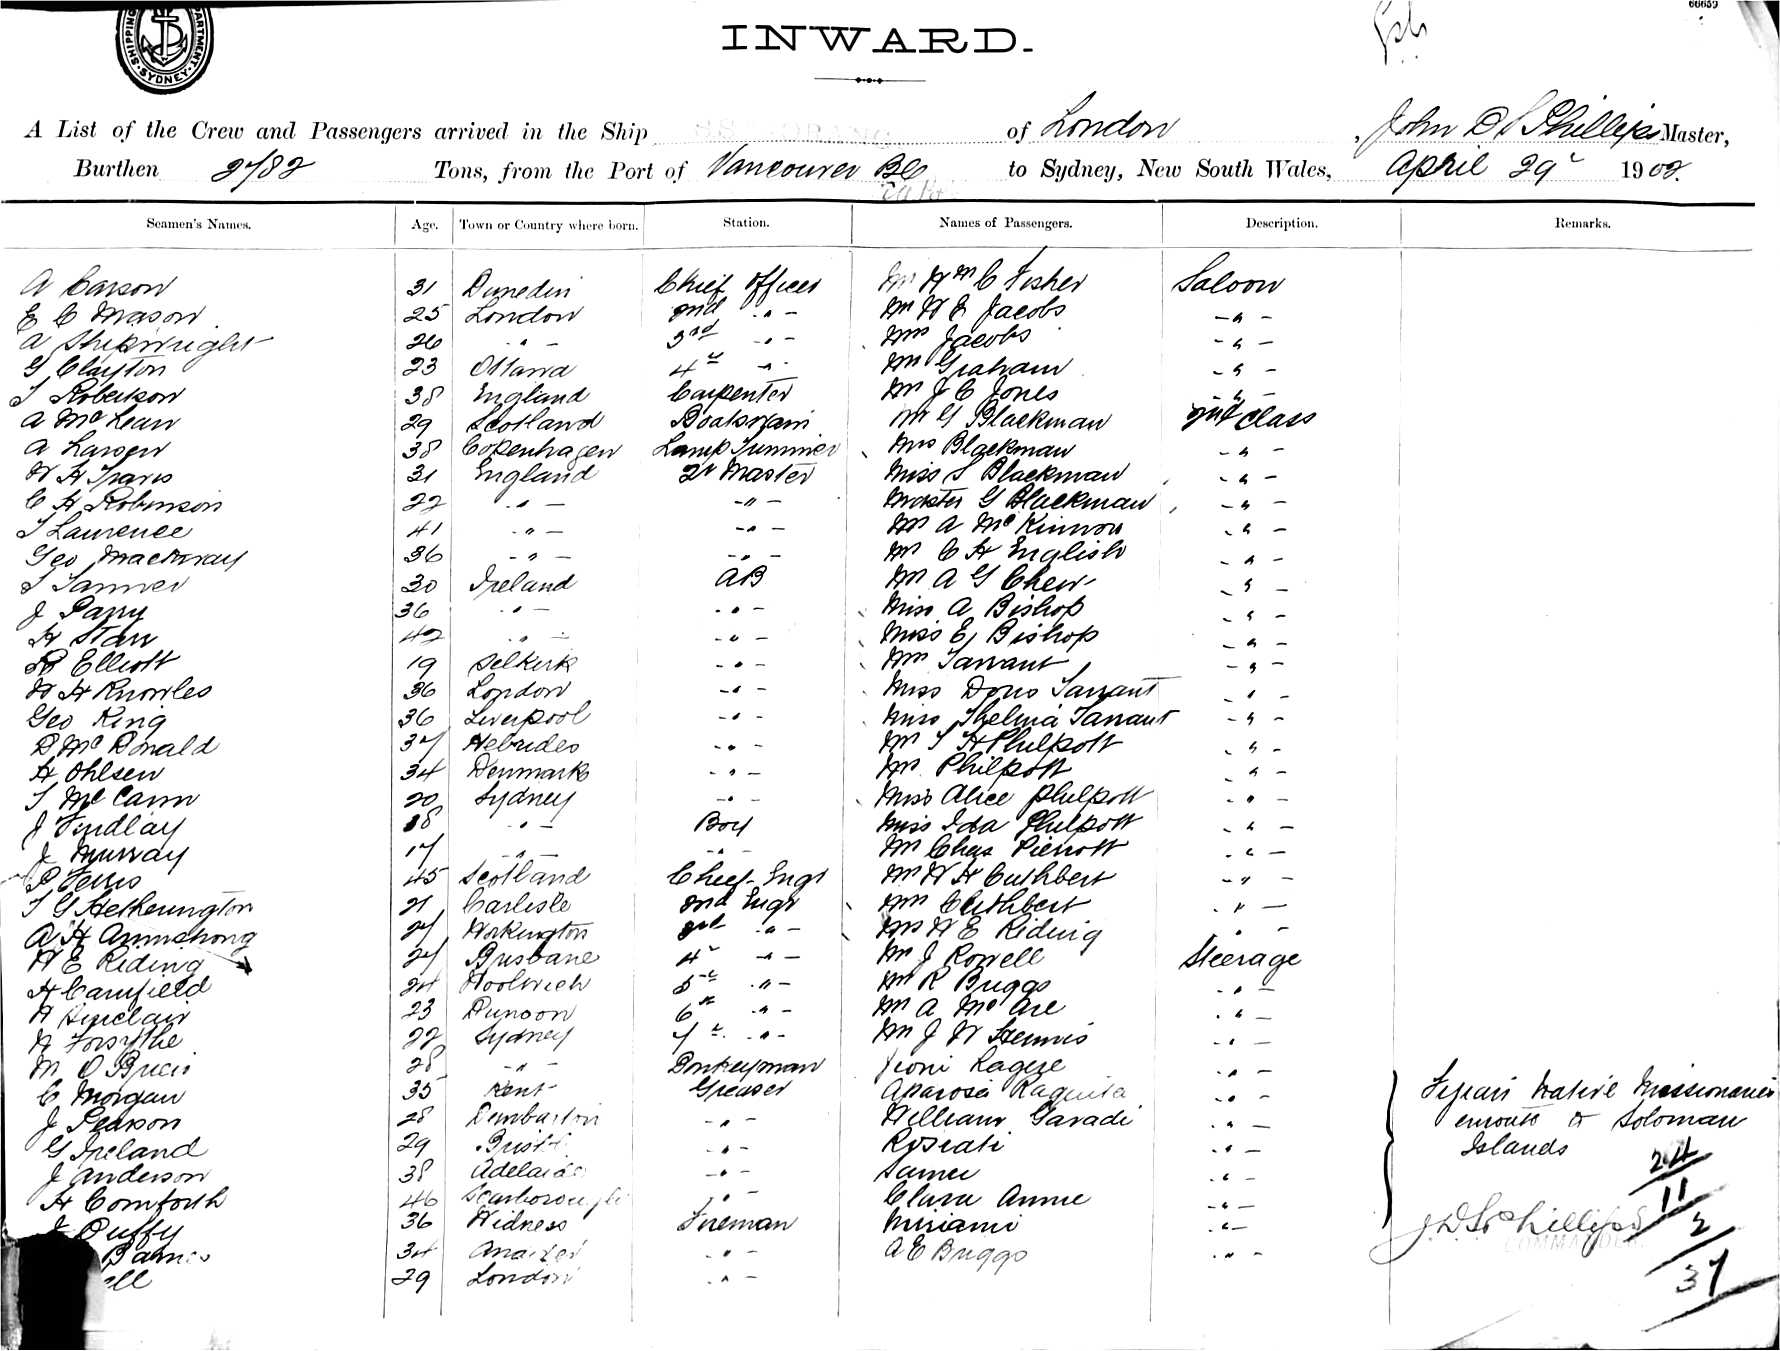 SHIPPING DEPARTMENT. SYDNEY.
66659
INWARD.
A List of the Crew and Passengers arrived in the Ship of London, John D S Phillips Master,
Burthen 2782 Tons, from the Port of Vancouver BC to Sydney, New South Wales, April 29 1902.
Seamen's Names. Age. Town or Country where born. Station. Names of Passengers. Description. Remarks.
A Carson 31 Dunedin Chief Officer Mr Wm C Fisher Saloon
E C Mason 25 London 2nd " - Mr W E Jacobs - " -
A Shipwright 26 " - 3rd - " - Mrs Jacobs - " -
G Clayton 23 Ottawa 4th " - Mr Graham - " -
T Robertson 38 England Carpenter Mr J C Jones - " -
A McLean 29 Scotland Boatswain Mr G Blackman 2nd class
A Larsen 38 Copenhagen Lamp Trimmer Mrs Blackman - " -
W H Travis 31 England Qr Master Miss S Blackman - " -
C H Robinson 22 " - - " - Master G Blackman - " -
T Laurence 41 - " - - " - Mr A McKinnon - " -
Geo Mackway 36 - " - - " - Mr C H English - " -
T Tanner 30 Ireland AB Mr A G Chew - " -
J Parry 36 - " - - " - Miss A Bishop - " -
H Starr 42 - " - - " - Miss E Bishop - " -
R Elliott 19 Selkirk - " - Mrs Tarrant - " -
W H Knowles 36 London - " - Miss Doris Tarrant - " -
Geo King 36 Liverpool - " - Miss Thelma Tarrant - " -
D McDonald 37 Hebrides - " - Mr T H Philpott - " -
H Ohlsen 34 Denmark - " - Mrs Philpott - " -
T McCann 20 Sydney - " - Miss Alice Philpott - " -
J Findlay 18 - " - Boy Miss Ida Philpott - " -
J Murray 17 - " - - " - Mr Chas Pierrott - " -
P 45 Scotland Chief Engr Mr W H Cuthbert - " -
T G Hetherington 21 Carlisle 2nd Engr Mrs Cuthbert - " -
A H Armstrong 27 Workington 3rd " - Mrs W E Riding - " -
W E Riding 27 Brisbane 4th - " - Mr J Rowell Steerage
H Camfield 24 Woolwich 5th - " - Mr R Briggs - " -
W Sinclair 23 Dunoon 6th - " - Mr A McAre - " -
W Forsythe 22 Sydney 7th - " - Mr J W Hennis - " -
M O'Brien 28 - " - Donkeyman - " -
C Morgan 35 Kent Greaser Aparosa - " - Fijian Native Missionaries
J Pearson 28 Dumbarton - " - William Gavadi - " - enroute to Soloman
G Ireland 29 - " - Roseati - " - Islands
J Anderson 38 Adelaide - " - Samu - " - 24
H Cornforth 46 Scarborough - " - Clara Annie - " - 11
J Duffy 36 Widness Fireman Miriami - " - J D S Phillips 2
Barnes 34 - " - A E Briggs - " - COMMANDER
ell 29 London - " - 37